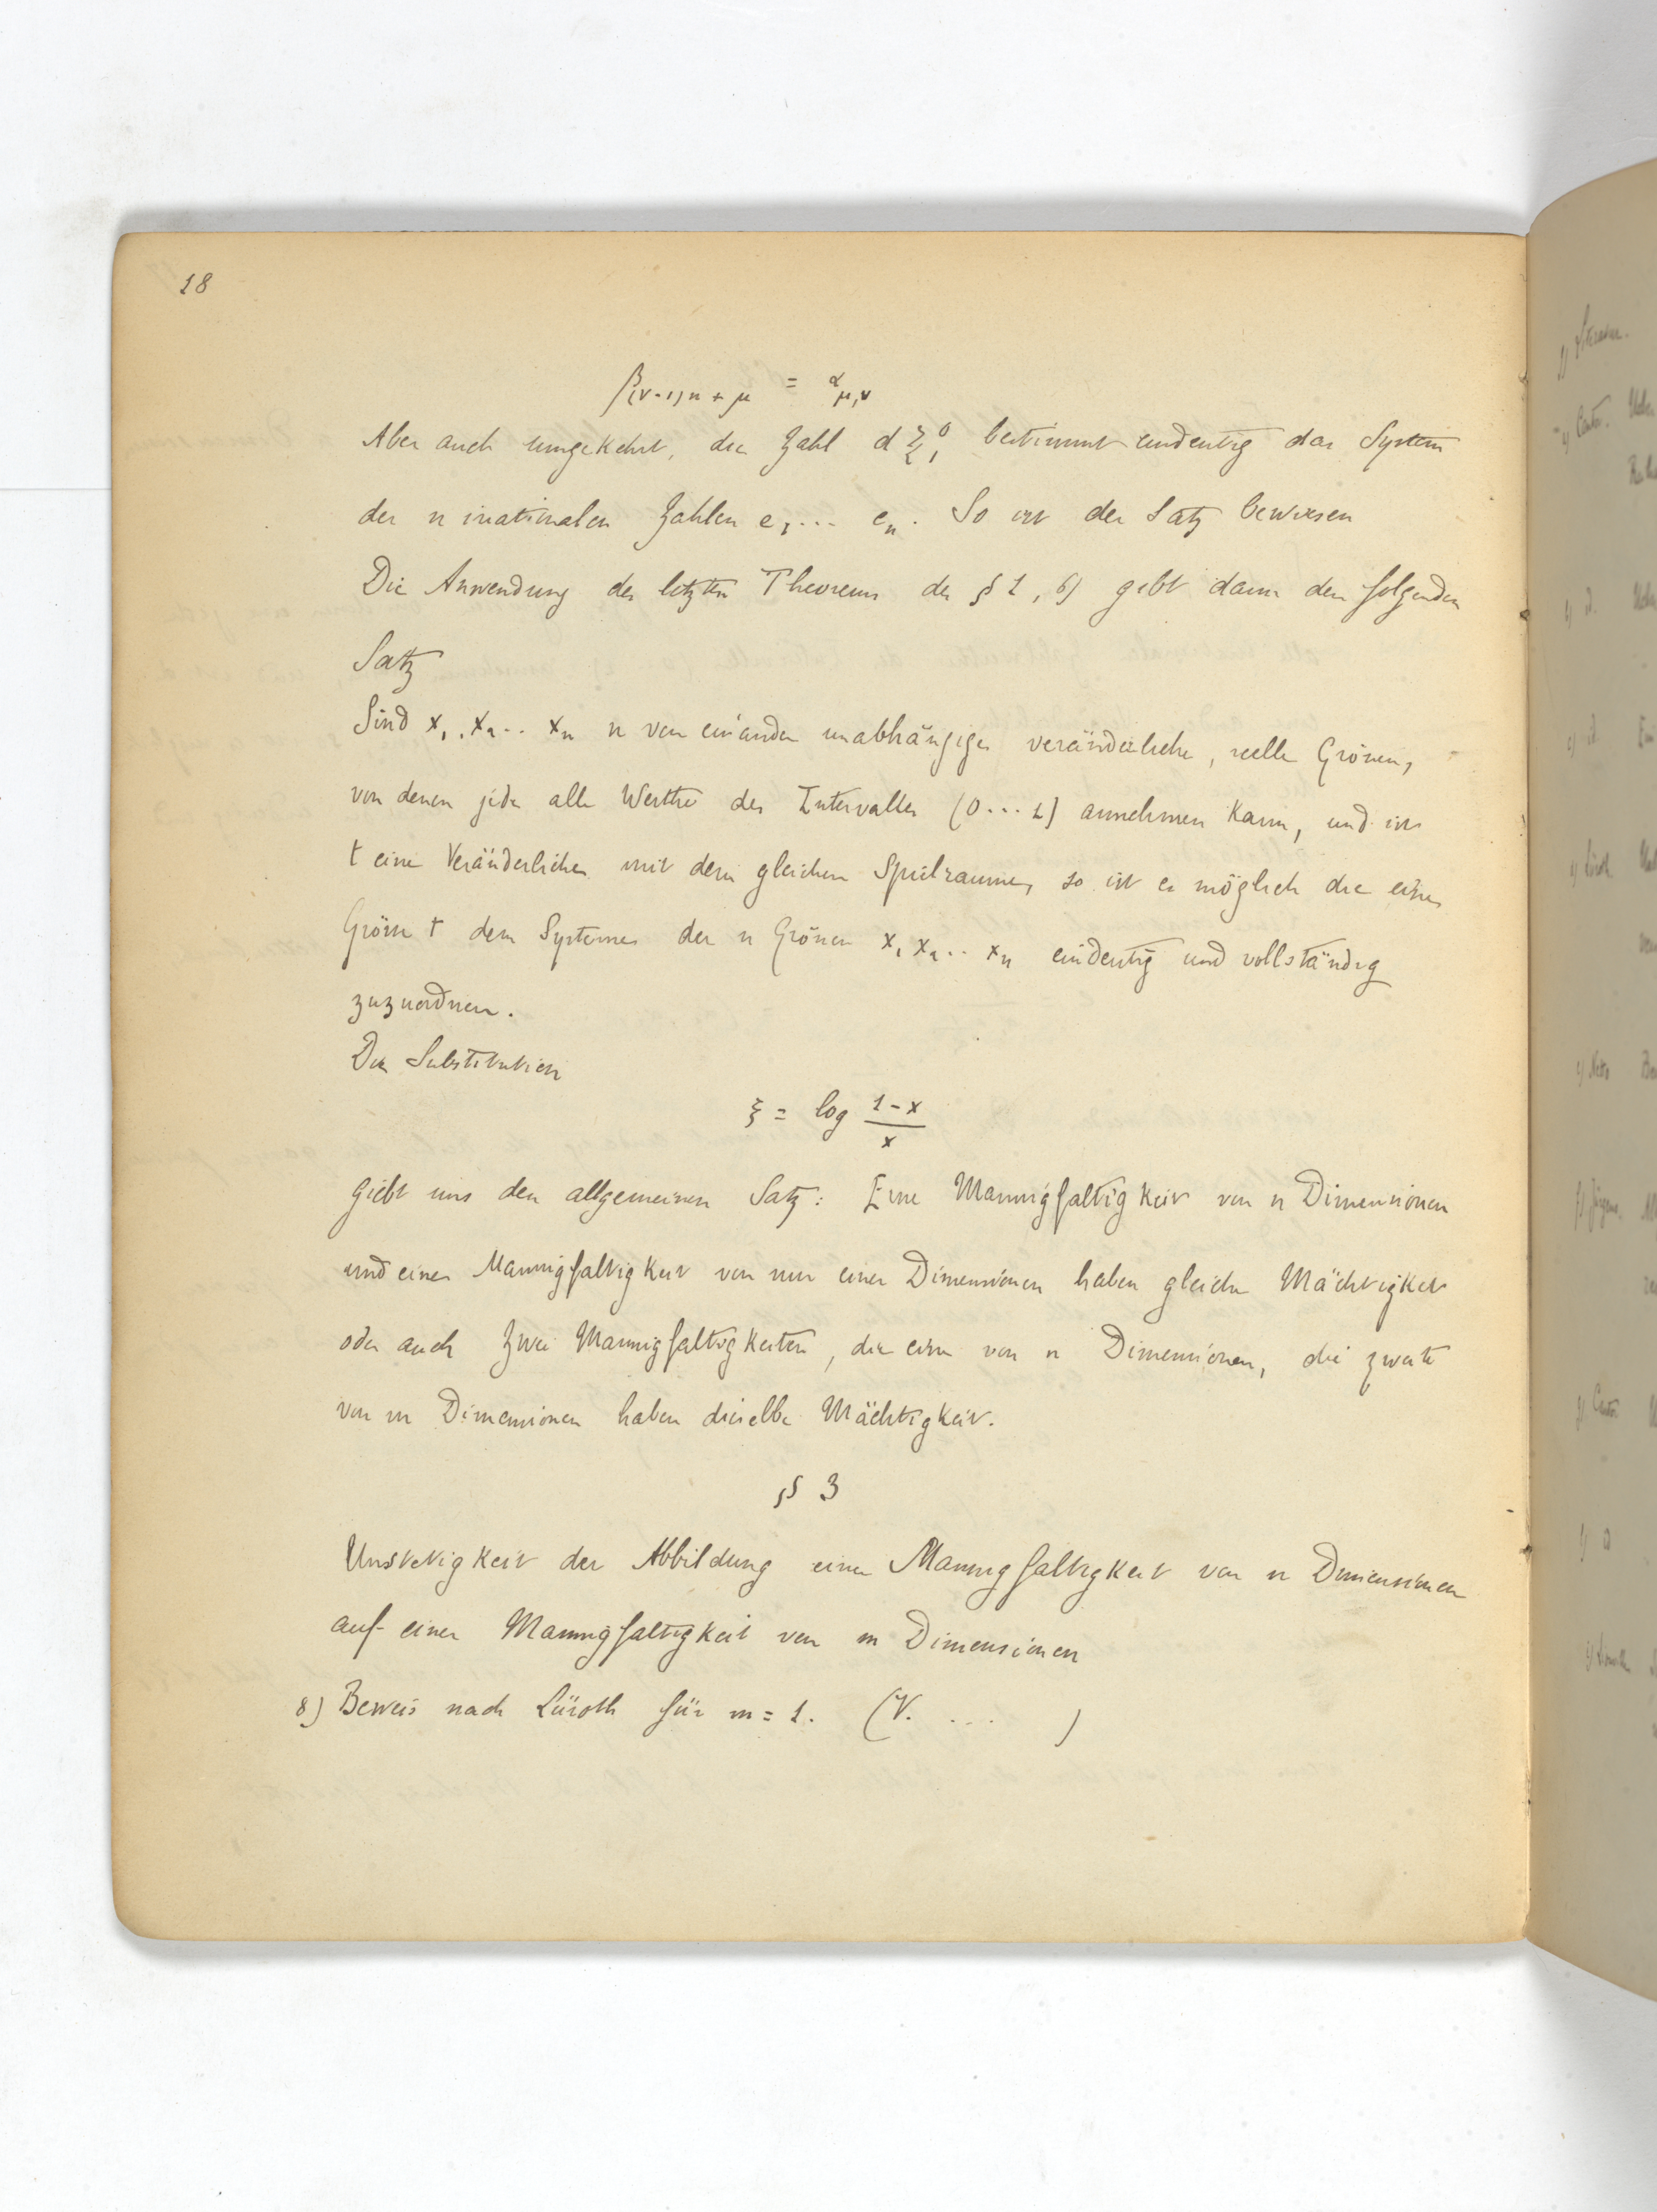 18
β(ν-1)n+μ = α μ,ν
Aber auch umgekehrt, die Zahl d bestimmt eindeutig das System
der n irrationalen Zahlen e1... en. So ist der Satz bewiesen
Die Anwendung des letzten Theorems des § 1, 6) gebt dann den folgenden
Satz
Sind x1, x2.. xn n von einander unabhängige veränderliche, reelle Grössen,
von denen jede alle Werthe des Intervalles (0...1) annehmen kann, und ist
t eine Veränderliche mit dem gleichen Spielraume, so ist es möglich die eine
Grösse t dem Systeme der n Grössen x1 x2.. xn eindeutig und vollständig
zuzuordnen.
Die Substitution
ξ = log (1-x)/x
giebt uns den allgemeinen Satz: Eine Mannigfaltigkeit von n Dimensionen
und eine Mannigfaltigkeit von nur einer Dimensionen haben gleiche Mächtigkeit
oder auch zwei Mannigfaltigkeiten, die eine von n Dimensionen, die zweite
von m Dimensionen haben dieselbe Mächtigkeit.
§ 3
Unstetigkeit der Abbildung einer Mannigfaltigkeit von n Dimensionen
auf einer Mannigfaltigkeit von m Dimensionen
8) Beweis nach Lüroth für m = 1. (V. ... )